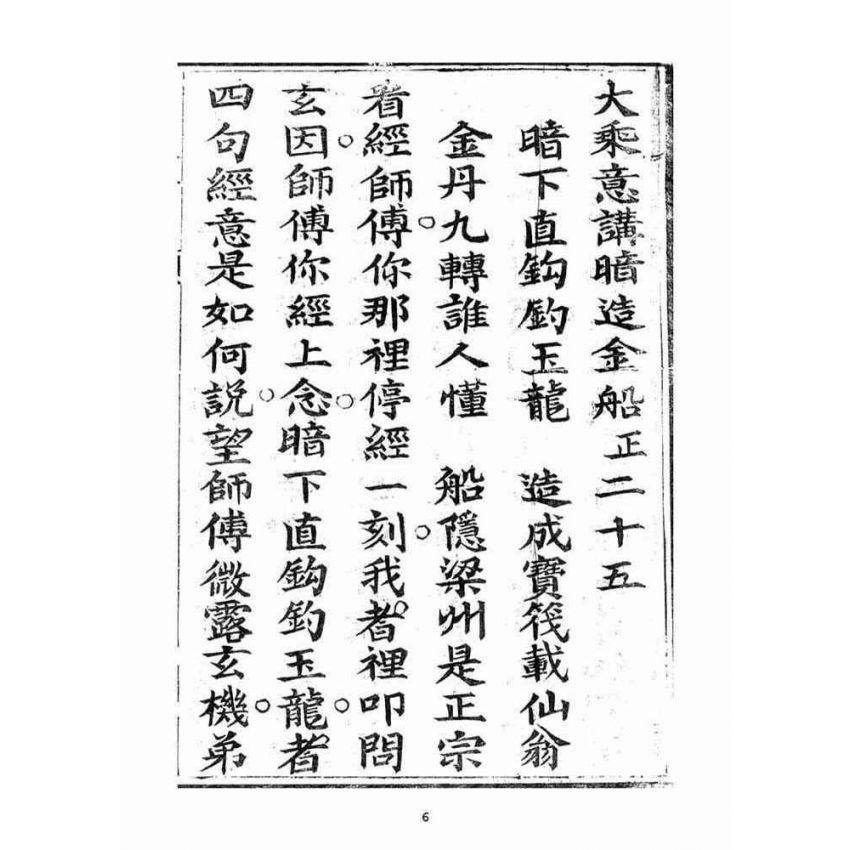 大乘意講暗造金船正二十五
暗下直鈎釣玉龍　造成寶筏載仙翁
金丹九轉誰人懂　船隱梁州是正宗
看經師傅你那裡停經一刻我者裡叩問
玄因師傅你經上念暗下直鈎釣玉龍者
四句經意是如何說望師傅微露玄機弟
6